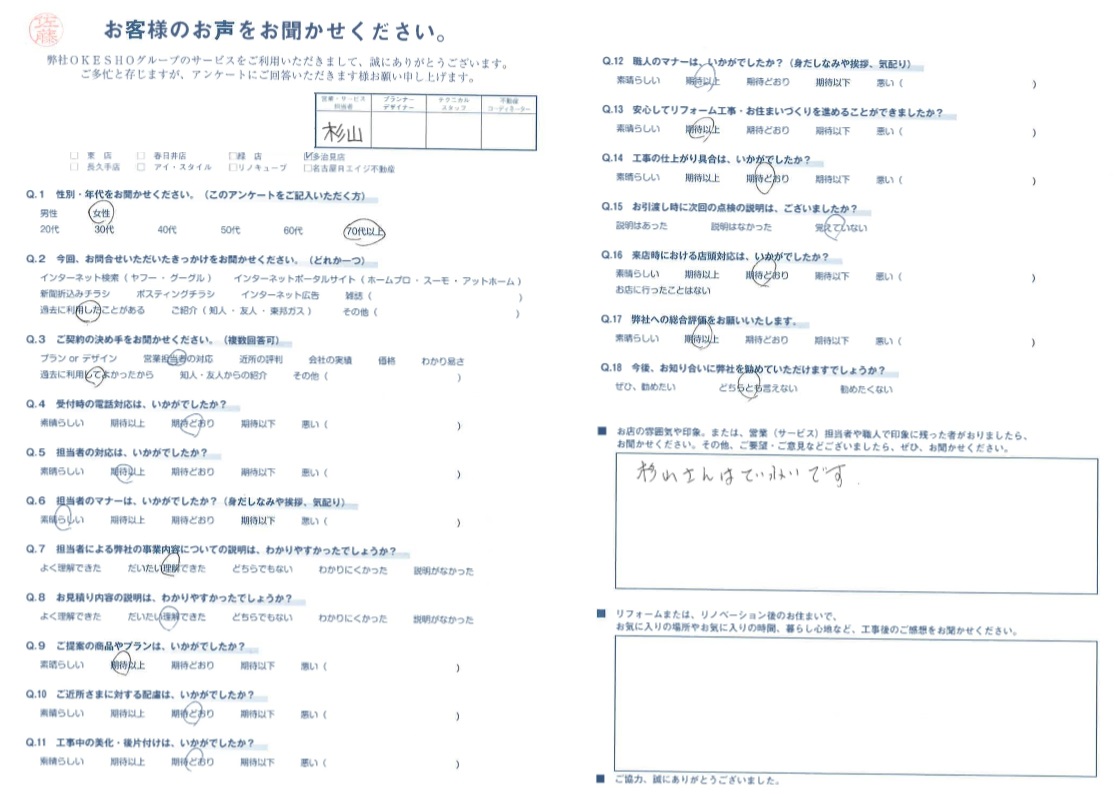 佐藤
お客様のお声をお聞かせください。
弊社OKESHOグループのサービスをご利用いただきまして、誠にありがとうございます。
ご多忙と存じますが、アンケートにご回答いただきます様お願い申し上げます。
営業・サービス担当者 プランナーデザイナー テクニカルスタッフ 不動産コーディネーター
杉山
□ 東 店 □ 春日井店 □緑 店 ☑多治見店
□ 長久手店 □ アイ・スタイル □リノキューブ □名古屋月エイジ不動産
Q.1 性別・年代をお聞かせください。（このアンケートをご記入いただく方）
男性 女性
20代 30代 40代 50代 60代 70代以上
Q.2 今回、お問合せいただいたきっかけをお聞かせください。（どれか一つ）
インターネット検索（ ヤフー ・ グーグル ） インターネットポータルサイト（ ホームプロ ・ スーモ ・ アットホーム ）
新聞折込みチラシ ポスティングチラシ インターネット広告 雑誌（ ）
過去に利用したことがある ご紹介（ 知人 ・ 友人 ・ 東邦ガス ） その他（ ）
Q.3 ご契約の決め手をお聞かせください。（複数回答可）
プラン or デザイン 営業担当者の対応 近所の評判 会社の実績 価格 わかり易さ
過去に利用してよかったから 知人・友人からの紹介 その他（ ）
Q.4 受付時の電話対応は、いかがでしたか？
素晴らしい 期待以上 期待どおり 期待以下 悪い（ ）
Q.5 担当者の対応は、いかがでしたか？
素晴らしい 期待以上 期待どおり 期待以下 悪い（ ）
Q.6 担当者のマナーは、いかがでしたか？（身だしなみや挨拶、気配り）
素晴らしい 期待以上 期待どおり 期待以下 悪い（ ）
Q.7 担当者による弊社の事業内容についての説明は、わかりやすかったでしょうか？
よく理解できた だいたい理解できた どちらでもない わかりにくかった 説明がなかった
Q.8 お見積り内容の説明は、わかりやすかったでしょうか？
よく理解できた だいたい理解できた どちらでもない わかりにくかった 説明がなかった
Q.9 ご提案の商品やプランは、いかがでしたか？
素晴らしい 期待以上 期待どおり 期待以下 悪い（ ）
Q.10 ご近所さまに対する配慮は、いかがでしたか？
素晴らしい 期待以上 期待どおり 期待以下 悪い（ ）
Q.11 工事中の美化・後片付けは、いかがでしたか？
素晴らしい 期待以上 期待どおり 期待以下 悪い（ ）
Q.12 職人のマナーは、いかがでしたか？（身だしなみや挨拶、気配り）
素晴らしい 期待以上 期待どおり 期待以下 悪い（ ）
Q.13 安心してリフォーム工事・お住まいづくりを進めることができましたか？
素晴らしい 期待以上 期待どおり 期待以下 悪い（ ）
Q.14 工事の仕上がり具合は、いかがでしたか？
素晴らしい 期待以上 期待どおり 期待以下 悪い（ ）
Q.15 お引渡し時に次回の点検の説明は、ございましたか？
説明はあった 説明はなかった 覚えていない
Q.16 来店時における店頭対応は、いかがでしたか？
素晴らしい 期待以上 期待どおり 期待以下 悪い（ ）
お店に行ったことはない
Q.17 弊社への総合評価をお願いいたします。
素晴らしい 期待以上 期待どおり 期待以下 悪い（ ）
Q.18 今後、お知り合いに弊社を勧めていただけますでしょうか？
ぜひ、勧めたい どちらとも言えない 勧めたくない
■ お店の雰囲気や印象。または、営業（サービス）担当者や職人で印象に残った者がおりましたら、
お聞かせください。その他、ご要望・ご意見などございましたら、ぜひ、お聞かせください。
杉山さんはていねいです.
■ リフォームまたは、リノベーション後のお住まいで、
お気に入りの場所やお気に入りの時間、暮らし心地など、工事後のご感想をお聞かせください。
■ ご協力、誠にありがとうございました。